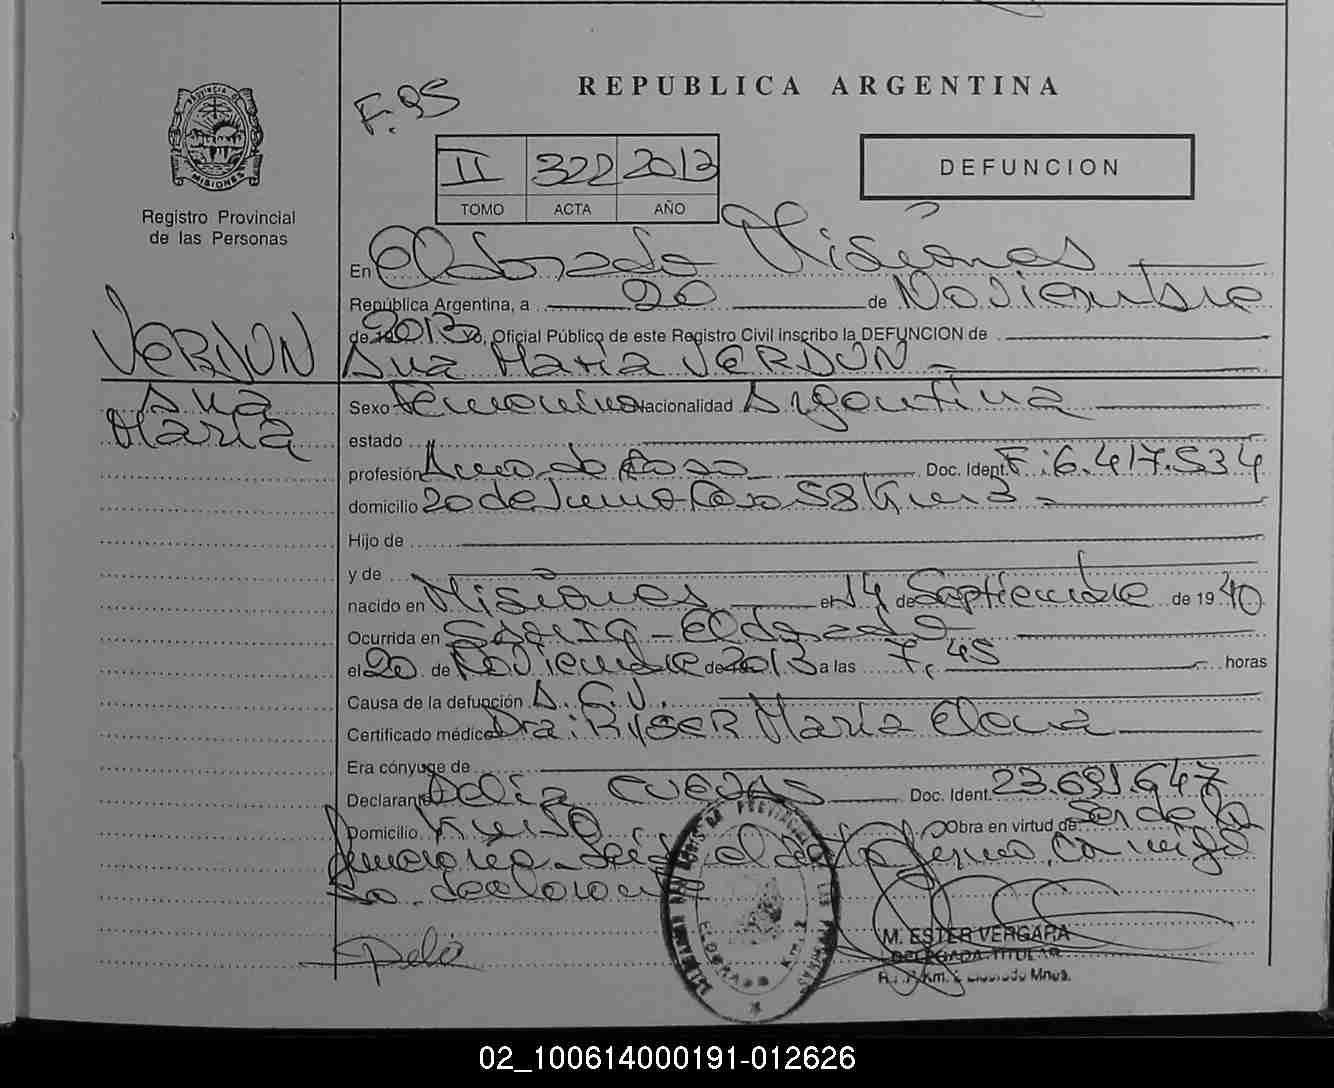 REPUBLICA ARGENTINA
F. 95
PROVINCIA DE
MISIONES
II 322 2013
TOMO ACTA AÑO
DEFUNCION
Registro Provincial
de las Personas
En Eldorado Misiones
República Argentina, a 20 de Noviembre
de 2013 yo, Oficial Público de este Registro Civil inscribo la DEFUNCION de
VERDUN Ana María VERDUN
Ana
María
Sexo femenino Nacionalidad Argentina
estado
profesión Ama de Casa Doc. Ident. F: 6.417.534
domicilio 20 de Junio Casa 58 Km 3
Hijo de
y de
nacido en Misiones el 14 de Septiembre de 1940
Ocurrida en Eldorado
el 20 de Noviembre de 2013 a las 7,45 horas
Causa de la defunción A.C.V.
Certificado médico Dra: RYSER María Elena
Era cónyuge de
Declarante Delia CUEVAS Doc. Ident. 23.691.647
Domicilio Km Obra en virtud de Ser de la
funeraria Leida el acta firma conmigo
la declarante
Delia
M. ESTER VERGARA
DELEGADA TITULAR
Eldorado Mnes.
02_100614000191-012626